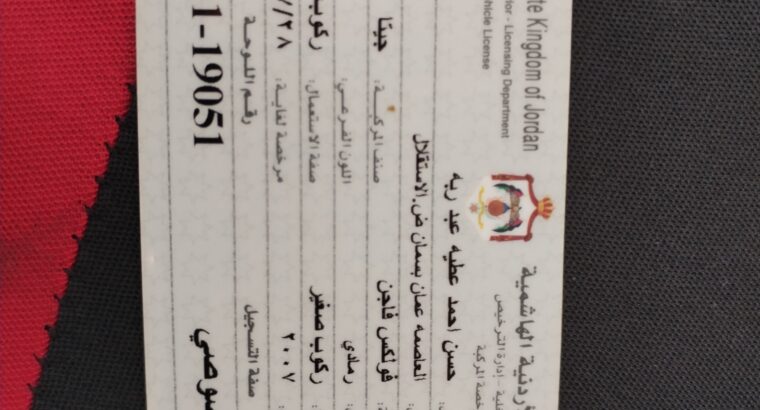 الهاشمية Kingdom of Jordan
إدارة الترخيص - Licensing Department
المركبة License
حسن احمد عطيه عبد ربه
العاصمه عمان بسمان ض.الاستقلال
فولكس فاجن صنف المركبة: جيتا
رمادي اللون الفرعي:
ركوب صغير صفة الاستعمال: ركوب
٢٠٠٧ مرخصة لغاية: ٢٨/
صفة التسجيل رقم اللوحة
1-19051